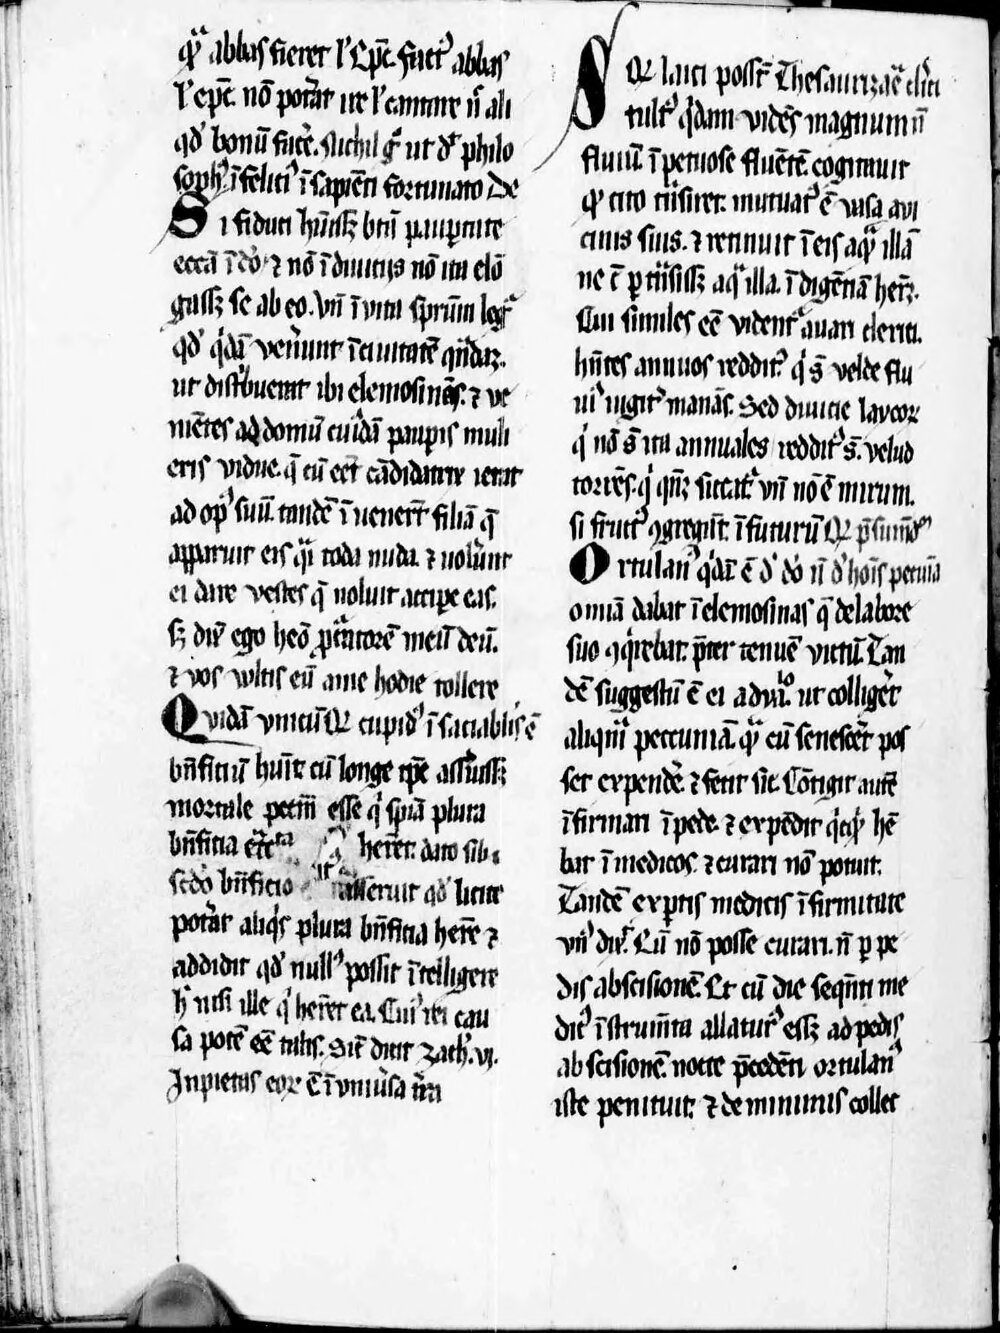 qͣ abbas fieret lˀ Epc̄. factꝰ abbas
lˀ epc̄. nō potˀat ire lˀ cantare nˡ ali
qdˀ bonū facˀe. Nichil gͥ ut dˀ philo
sophꝰ īfelitiꝰ īsapiēti fortunato De
Si fiduti hūissꝫ btū paupertate
eccā ī dō ⁊ nō ī diuitijs nō ita elō
gassꝫ se ab eo. Vn̄ ī vita sp̄rum legͥ
qdˀ qͥdā venˀunt ī ciuitatē qn̄dā.
ut distͥbuerāt ibi elemosinās. ⁊ ve
niētes ad domū cuiͥdā paupis muli
eris vidue. q̄ cū eet cādidatrix ierat
ad opꝰ suū. tandē ī uenert filiā q̄
apparuit eis qͣi toda nuda. ⁊ uolˀunt
ei dare vestes q̄ noluit accipe eas.
sꝫ dixͭ ego heō pͨratorē meū deū.
⁊ vos vultis eū a me hodie tollere
Quidā vnicūqꝫ cupidꝰ īsaciablis ē
bn̄ficiū huīt cū longe tp̄e assˀuissꝫ
mortale pctm̄ esse qͥ spiā plura
bn̄ficia herˀet. dato sibi
sedō bn̄ficio asseruit qdˀ licite
potˀat aliqͥs plura bn̄ficia herˀe ⁊
addidit qdˀ nullꝰ possit ītelligere
hˀ nisi ille qͥ herˀet ea. Cuiꝰ rei cau
sa potē eē talis. Sic̄ dicit Zach. vi.
Inpietas eoꝝ ē ī vniuˀsa tˀra
Noꝝ laici possˀt Thesaurizaͤ cˀlici
tultꝰ qͥdam vidēs magnum ū
fluuiū īpetuose fluētē. cogitauit
qͩ cito tn̄siret. mutuatꝰ ē vasa a vi
cinis suis. ⁊ retinuit ī eis aqͣ illā
ne c̄ ptn̄sissꝫ aqͣ illa. īdigētiā herˀꝫ.
Cui similes eē videntͬ auari clerici.
hn̄tes annuos redditꝰ. qͥ sˀ velde flu
uiꝰ iugitͬ manās. Sed diuicie laycoꝝ
qͥ nō sˀ ita annuales redditꝰ sˀ. velud
torrēs. qͥ qn̄ꝫ siccatͬ. vn̄ nō ē mirum.
si fructꝰ ꝯgregāt ī futurū Qꝫ p̄sumdˀ
Ortulanꝰ qͥdā ē dˀ dō nˡ dˀ hoīs pecuīa
omīa dabat ī elemosinas q̄ de labore
suo ꝯqͥrebat. p̄ter tenuē victū. Tan
dē suggestū ē ei a dy̆o. ut colligˀet
aliqͣm peccuniā. qͣ cū senescˀet pos
set expendˀe. ⁊ fecit sic. Cōtigit autē
īfirmari ī pede. ⁊ expēdit qͥcqͩ hē
bat ī medicos. ⁊ curari nō potuit.
Tandē exptis medicis īfirmitate
vnͥ dixͭ. Eū nō posse curari. n̄ p pe
dis abscisionē. Et cū die seqn̄ti me
dicꝰ īstrum̄ta allaturꝰ essꝫ ad pedis
abscisionē. nocte p̄cedēti ortulanꝰ
iste penituit. ⁊ de minimis collec